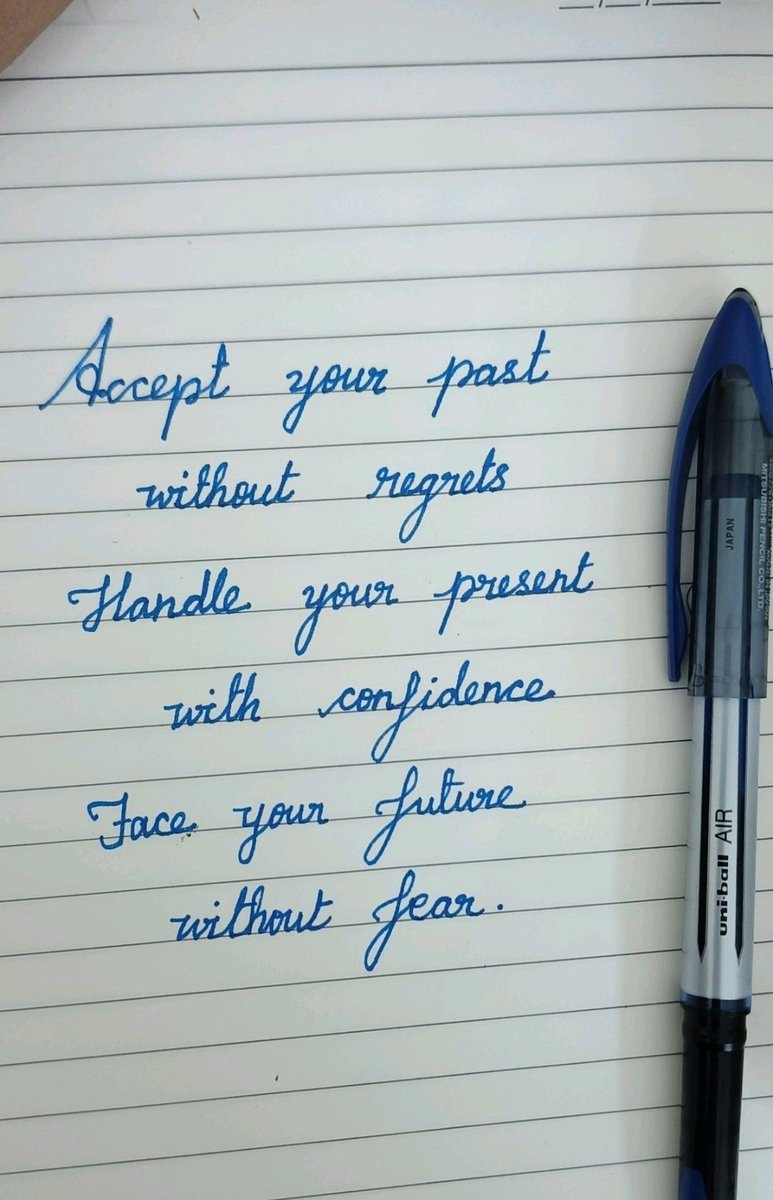 Accept your past
without regrets
Handle your present
with confidence
Face your future
without fear.
JAPAN
MITSUBISHI PENCIL CO., LTD.
uni-ball AIR